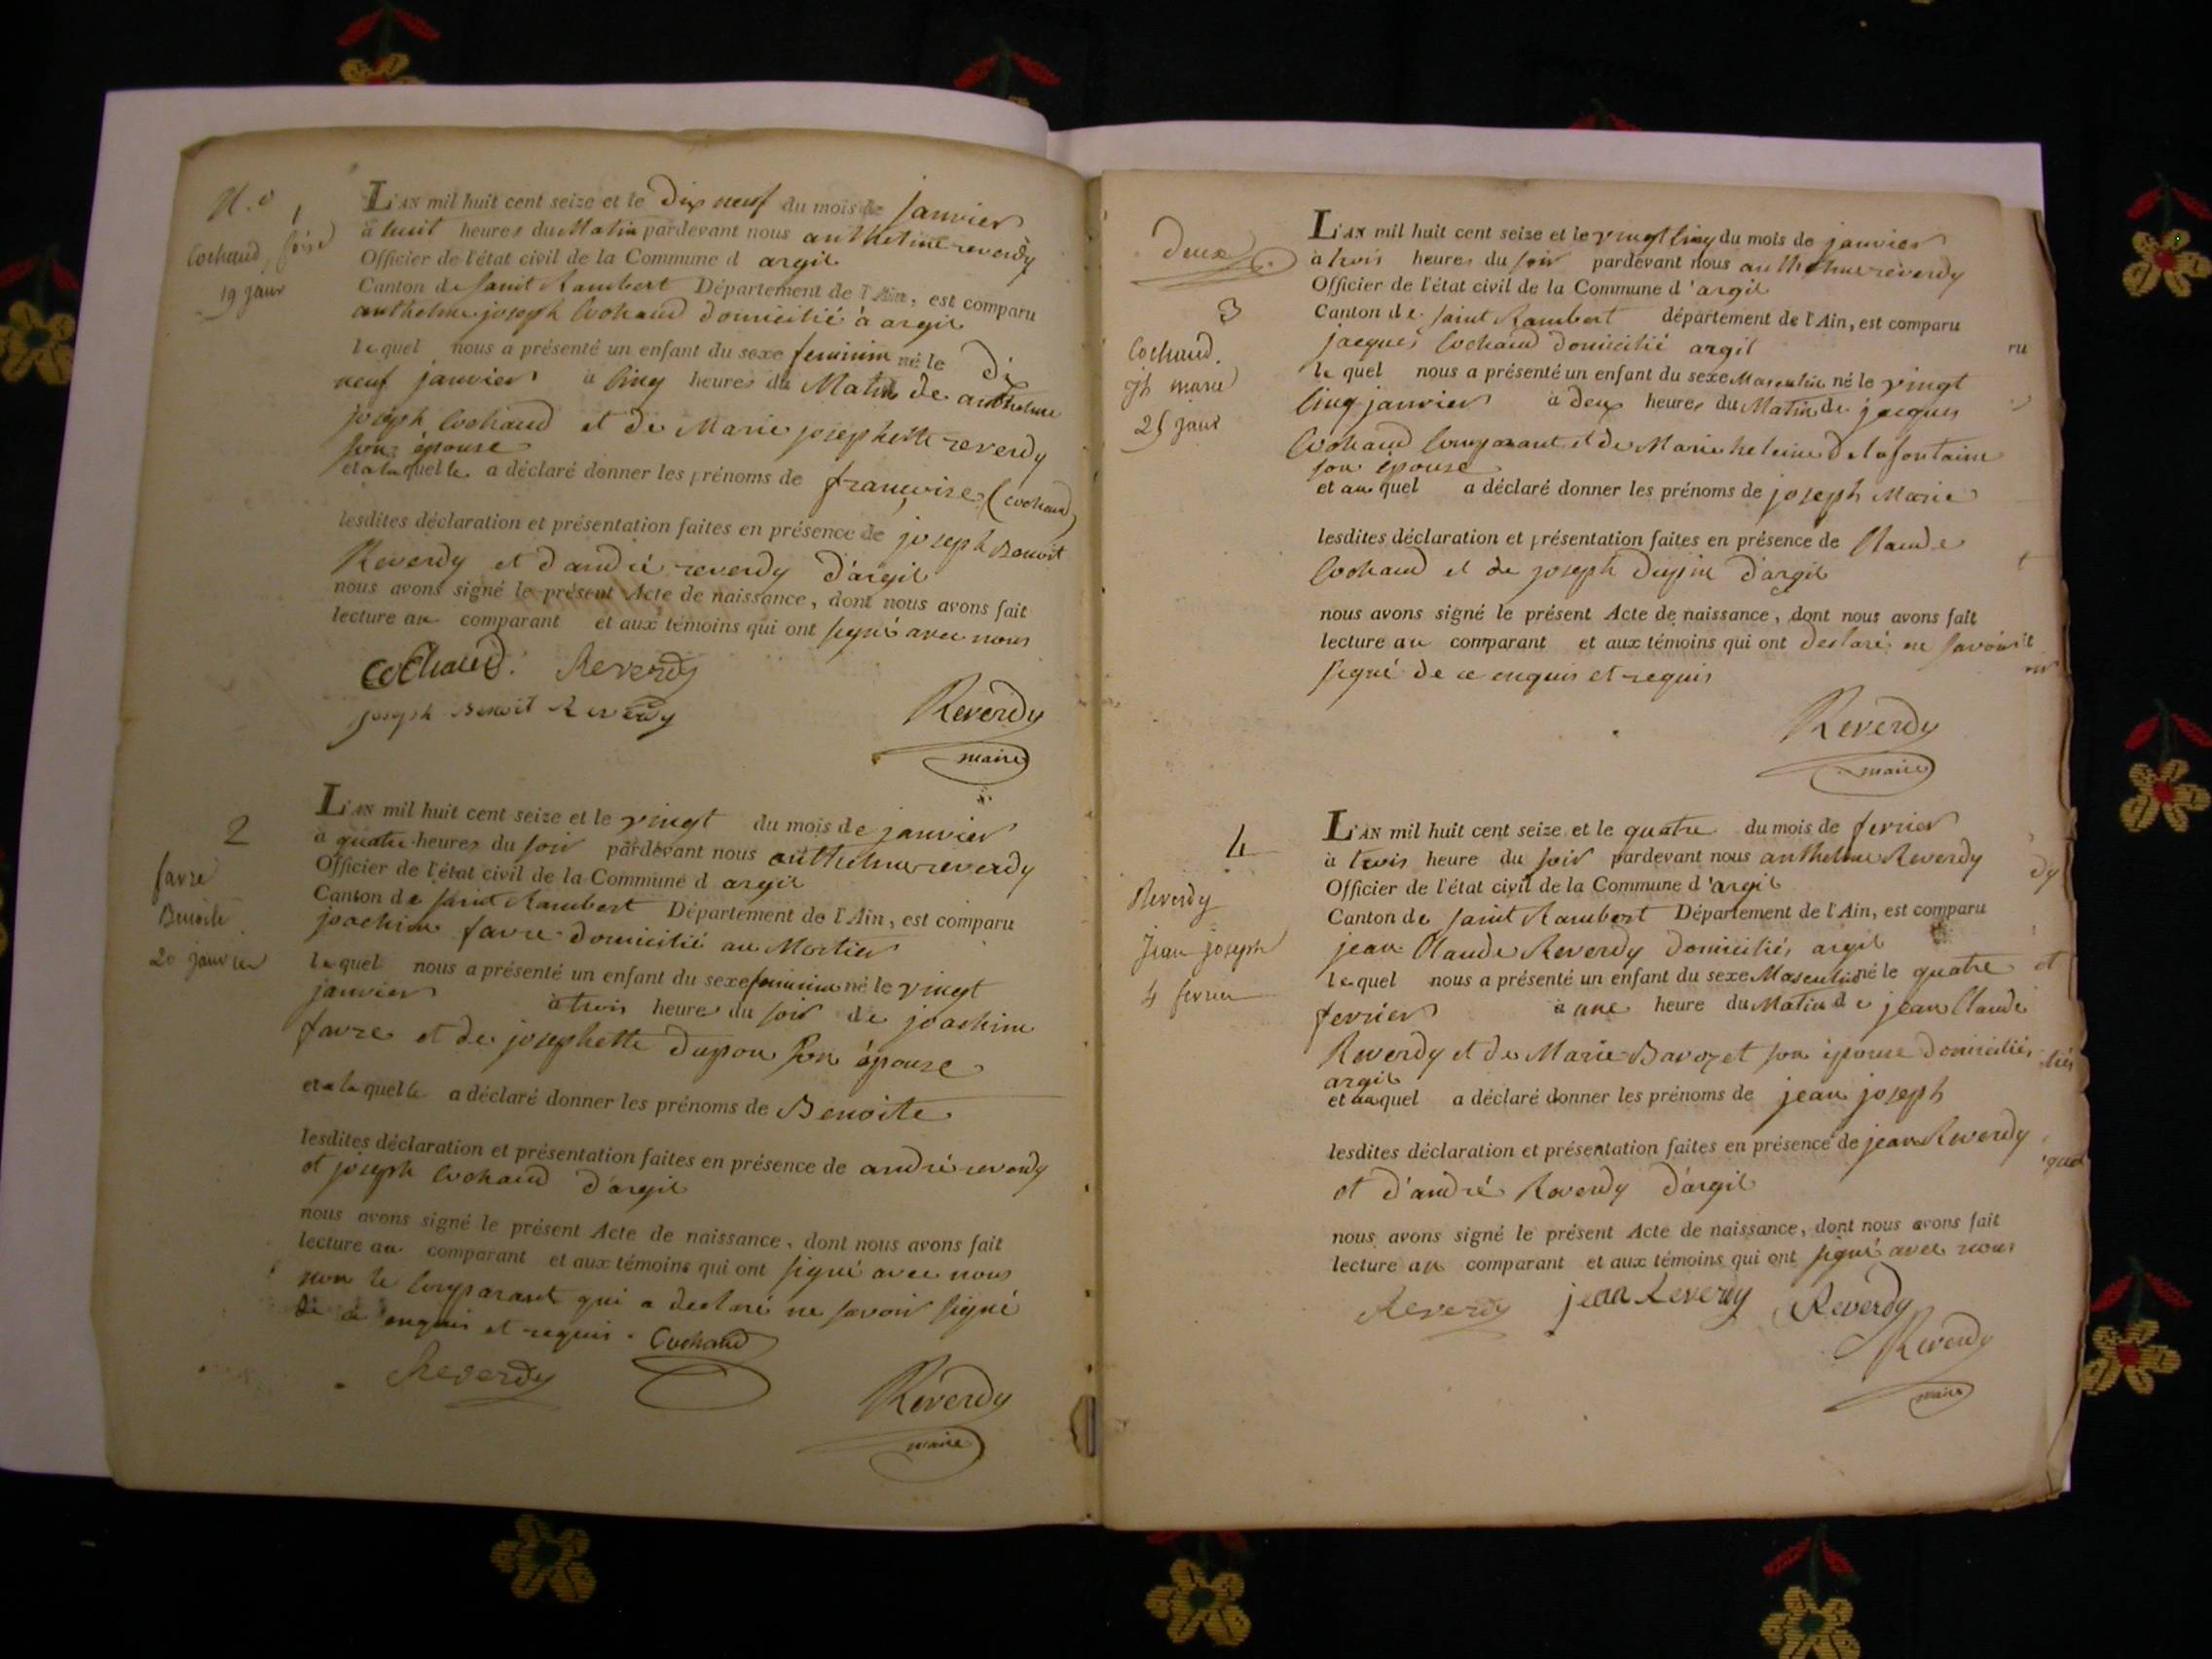 N.o 1
Cochaud
19 janv
L'AN mil huit cent seize et le Dix neuf du mois de janvier
à huit heures du Matin pardevant nous anthelme reverdy
Officier de l'état civil de la Commune d argil
Canton de saint Rambert Département de l'Ain, est comparu
anthelme joseph Cochaud domicilié à argil
lequel nous a présenté un enfant du sexe feminin né le Di
neuf janvier à Cinq heures du Matin de anthelme
joseph Cochaud et de Marie josephette reverdy
son épouse
et a laquelle a déclaré donner les prénoms de françoise (Cochaud)
lesdites déclaration et présentation faites en présence de joseph Benoit
Reverdy et d'andré reverdy d'argil
nous avons signé le présent Acte de naissance, dont nous avons fait
lecture au comparant et aux témoins qui ont signé avec nous
Cochaud. Reverdy
joseph Benoit Reverdy
Reverdy
maire
2
favre
Benoite
20 janvier
L'AN mil huit cent seize et le vingt du mois de janvier
à quatre heures du soir pardevant nous anthelme reverdy
Officier de l'état civil de la Commune d argil
Canton de saint Rambert Département de l'Ain, est comparu
joachim favre domicilié au Mortier
lequel nous a présenté un enfant du sexe feminin né le vingt
janvier à trois heures du soir de joachim
favre et de josephette dupon son épouse
et a laquelle a déclaré donner les prénoms de Benoite
lesdites déclaration et présentation faites en présence de andré reverdy
et joseph Cochaud d'argil
nous avons signé le présent Acte de naissance, dont nous avons fait
lecture au comparant et aux témoins qui ont signé avec nous
non le Comparant qui a declaré ne savoir signé
de ce enquis et requis. Cochaud
Reverdy
Reverdy
maire
Deux
3
Cochaud.
jh marie
25 janv
L'AN mil huit cent seize et le vingt Cinq du mois de janvier
à trois heures du soir pardevant nous anthelme reverdy
Officier de l'état civil de la Commune d'argil
Canton de saint Rambert département de l'Ain, est comparu
jacques Cochaud domicilié argil
lequel nous a présenté un enfant du sexe Masculin né le vingt
Cinq janvier à deux heures du Matin de jacques
Cochaud Comparant et de Marie heleine Delafontaine
son épouse
et au quel a déclaré donner les prénoms de joseph Marie
lesdites déclaration et présentation faites en présence de Claude
Cochaud et de joseph Dupin d'argil
nous avons signé le présent Acte de naissance, dont nous avons fait
lecture au comparant et aux témoins qui ont declaré ne savoir
signé de ce enquis et requis
Reverdy
maire
4
Reverdy
Jean joseph
4 fevrier
L'AN mil huit cent seize et le quatre du mois de fevrier
à trois heure du soir pardevant nous anthelme Reverdy
Officier de l'état civil de la Commune d'argil
Canton de saint Rambert Département de l'Ain, est comparu
jean Claude Reverdy domiciliés argil
lequel nous a présenté un enfant du sexe Masculin né le quatre
fevrier à une heure du Matin de jean Claude
Reverdy et de Marie Bavozet son épouse domiciliés
argil
et auquel a déclaré donner les prénoms de jean joseph
lesdites déclaration et présentation faites en présence de jean Reverdy
et d'andré Reverdy d'argil
nous avons signé le présent Acte de naissance, dont nous avons fait
lecture au comparant et aux témoins qui ont signé avec nous
Reverdy jean Reverdy Reverdy
Reverdy
maire